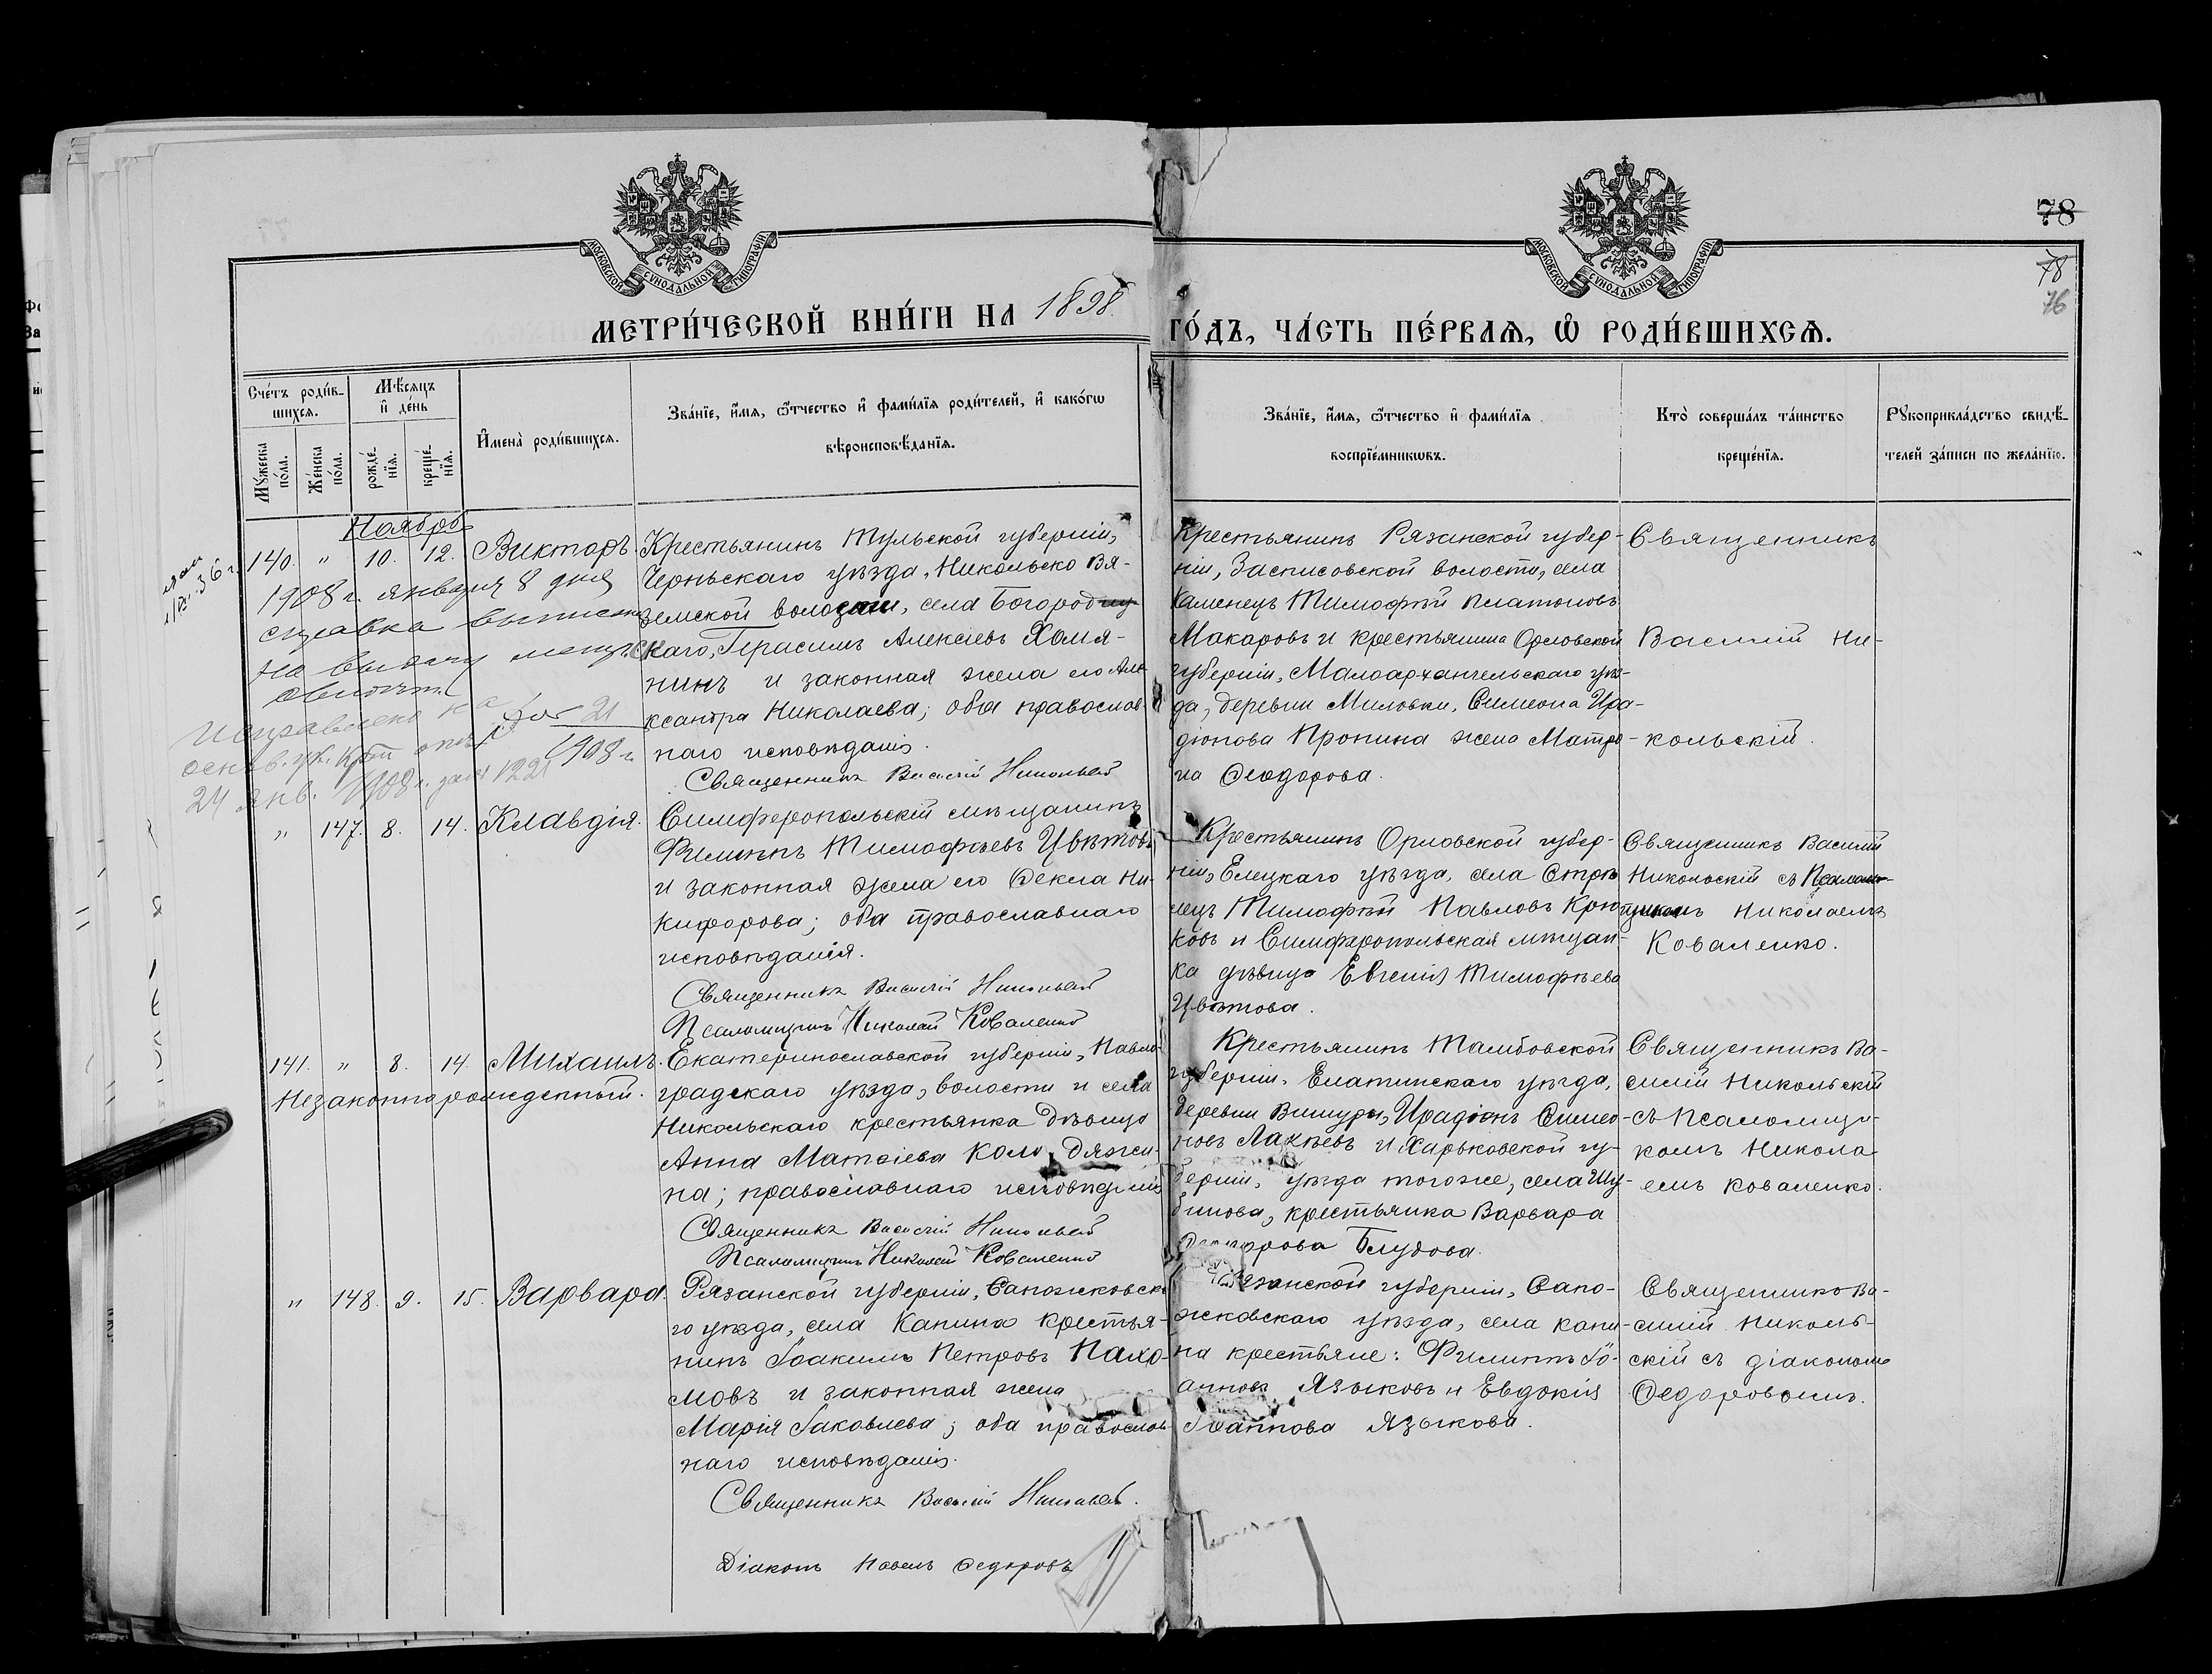 78
78
76
МОСКОВСКОЙ СѴНОДАЛЬНОЙ ТИПОГРАФІИ
МОСКОВСКОЙ СѴНОДАЛЬНОЙ ТИПОГРАФІИ
МЕТРИ́ЧЕСКОЙ КНИ́ГИ НА 1898.
ГО́ДЪ, ЧА́СТЬ ПЕ́РВАѦ, Ѡ҆ РОДИ́ВШИХСѦ.
Сче́тъ роди́в-
шихсѧ.
Мѣ́сѧцъ
и҆ де́нь
Мꙋ́жеска
по́ла.
Же́нска
по́ла.
рожде́-
нїѧ.
креще́-
нїѧ.
И҆мена̀ роди́вшихсѧ.
Зва́нїе, и҆́мѧ, ѻ҆́тчество и҆ фами́лїѧ роди́телей, и҆ како́гѡ
вѣроисповѣ́данїѧ.
Зва́нїе, и҆́мѧ, ѻ҆́тчество и҆ фами́лїѧ
воспрїе́мникѡвъ.
Кто̀ соверша́лъ та́инство
креще́нїѧ.
Рꙋкоприкла́дство свидѣ́-
телей за́писи по жела́нїю.
Ноябрь
140. " 10. 12. Викторъ.
1908 г. января 8 дня
справка
на выдачу
Исправлено на
1908 г.
24 янв. 1908 г.
Крестьянинъ Тульской губерніи,
Черньскаго уѣзда, Никольско Вя-
земской волости, села Богородиц-
каго, Герасимъ Алексіевъ Хомя-
нинъ и законная жена его Але-
ксандра Николаева; оба православ-
наго исповѣданія.
Священникъ Василій Никольскій
Крестьянинъ Рязанской губер-
ніи, Заснисовской волости, села
Каменецъ Тимофѣй Платоновъ
Макаровъ и крестьянина Орловской
губерніи, Малоархангельскаго уѣз-
да, деревни Миловки, Симеона Ира-
діонова Пронина жена Матро-
на Ѳеодорова.
Священникъ
Василій Ни-
кольскій.
" 147. 8. 14. Клавдія.
Симферопольскій мѣщанинъ
Филиппъ Тимофѣевъ Цвѣтовъ
и законная жена его Ѳекла Ни-
кифорова; оба православнаго
исповѣданія.
Священникъ Василій Никольскій
Псаломщикъ Николай Коваленко
Крестьянинъ Орловской губер-
ніи, Елецкаго уѣзда, села Стрѣ
лецъ Тимофѣй Павловъ Крю
ковъ и Симферопольская мѣщан-
ка дѣвица Евгенія Тимофѣева
Цвѣтова.
Священникъ Василій
Никольскій съ Псалом-
щикомъ Николаемъ
Коваленко.
141. " 8. 14. Михаилъ.
Незаконнорожденный.
Екатеринославской губерніи, Павло-
градскаго уѣзда, волости и села
Никольскаго крестьянка дѣвица
Анна Матѳіева Коло дяжи-
на; православнаго исповѣданія
Священникъ Василій Никольскій
Псаломщикъ Николай Коваленко
Крестьянинъ Тамбовской
губерніи, Елатинскаго уѣзда,
деревни Вишуры, Ирадіонъ Симео-
новъ Лахѣевъ и Харьковской гу-
берніи, уѣзда тогоже, села Шу-
бинова, крестьянка Варвара
Ѳеодорова Блудова.
Священникъ Ва-
силій Никольскій
съ псаломщи-
комъ Никола-
емъ Коваленко.
" 148. 9. 15. Варвара.
Рязанской губерніи, Сапожковска
го уѣзда, села Канина крестья-
нинъ Іоакимъ Петровъ Пахо-
мовъ и законная жена
Марія Іаковлева; оба православ-
наго исповѣданія.
Священникъ Василій Никольскій.
Діаконъ Павелъ Ѳедоровъ
Рязанской губерніи, Сапо-
жковскаго уѣзда, села Кани-
на крестьяне: Филиппъ Іо-
анновъ Языковъ и Евдокія
Іоаннова Языкова.
Священникъ Ва-
силій Николь-
скій съ діакономъ
Ѳедоровымъ.